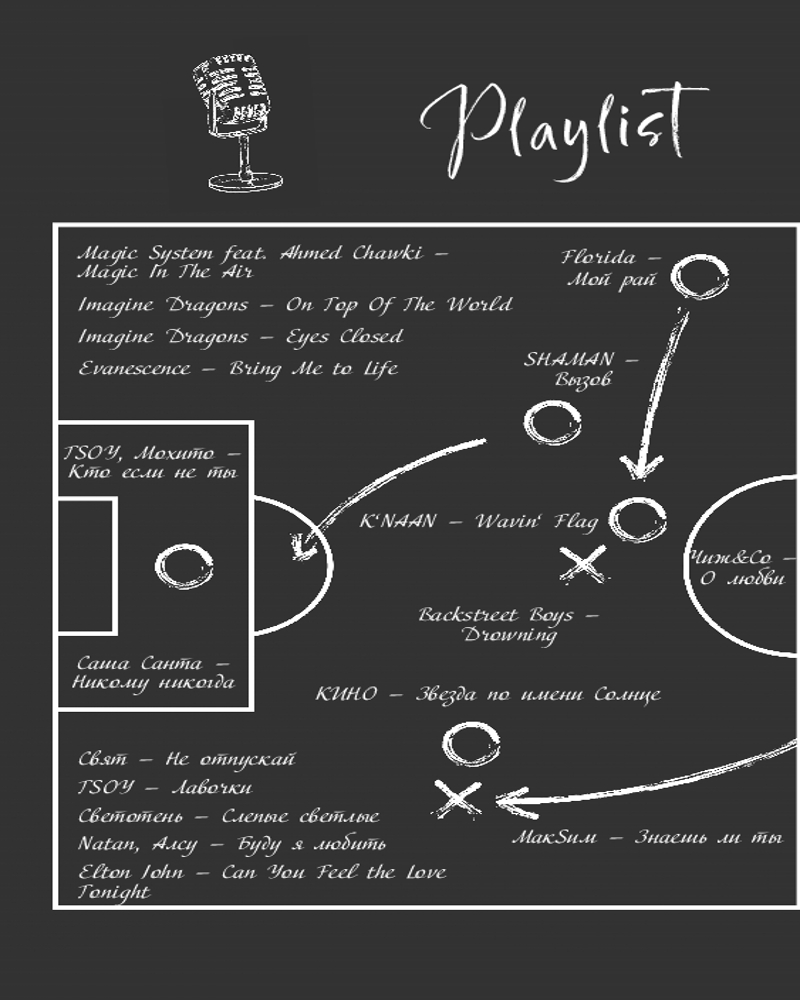 Playlist
Magic System feat. Ahmed Chawki –
Magic In The Air
Imagine Dragons – On Top Of The World
Imagine Dragons – Eyes Closed
Evanescence – Bring Me to Life
Florida –
Мой рай
SHAMAN –
Вызов
TSOY, Мохито –
Кто если не ты
K'NAAN – Wavin' Flag
Чиж&Co –
О любви
Backstreet Boys –
Drowning
Саша Санта –
Никому никогда
КИНО – Звезда по имени Солнце
Свят – Не отпускай
TSOY – Лавочки
Светотень – Слепые светлые
Natan, Алсу – Буду я любить
Elton John – Can You Feel the Love
Tonight
МакSим – Знаешь ли ты